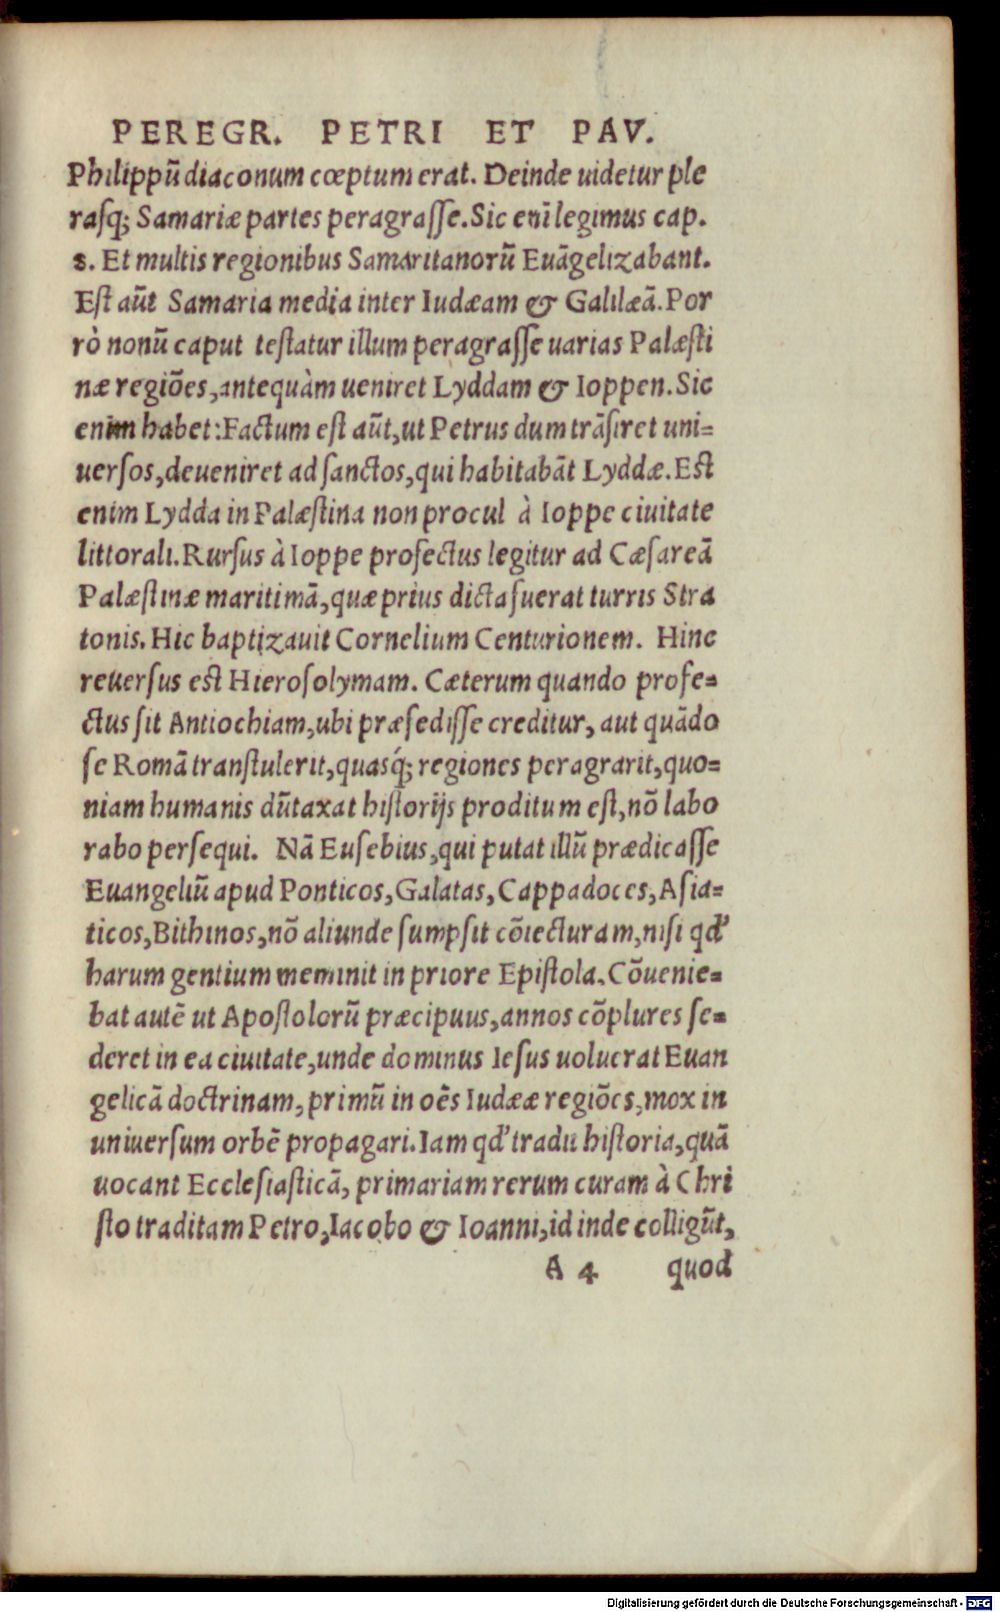 PEREGR. PETRI ET PAV.
Philippũ diaconum cœptum erat. Deinde uidetur ple
raſq; Samariæ partes peragraſſe. Sic eni legimus cap.
8. Et multis regionibus Samaritanorũ Euãgelizabant.
Eſt aũt Samaria media inter Iudæam & Galilæã. Por
rò nonũ caput teſtatur illum peragraſſe uarias Palæſti
næ regiões, antequàm ueniret Lyddam & Ioppen. Sic
enim habet: Factum eſt aũt, ut Petrus dum trãſiret uni=
uerſos, deueniret ad ſanctos, qui habitabãt Lyddæ. Eſt
enim Lydda in Palæſtina non procul à Ioppe ciuitate
littorali. Rurſus à Ioppe profectus legitur ad Cæſareã
Palæſtinæ maritimã, quæ prius dicta fuerat turris Stra
tonis. Hic baptizauit Cornelium Centurionem. Hinc
reuerſus eſt Hieroſolymam. Cæterum quando profe=
ctus ſit Antiochiam, ubi præſediſſe creditur, aut quãdo
ſe Romã tranſtulerit, quasq́; regiones peragrarit, quo=
niam humanis dũtaxat hiſtorijs proditum eſt, nõ labo
rabo perſequi. Nã Euſebius, qui putat illũ prædicaſſe
Euangeliũ apud Ponticos, Galatas, Cappadoces, Aſia=
ticos, Bithinos, nõ aliunde ſumpſit cõiecturam, niſi qđ
harum gentium meminit in priore Epiſtola. Cõuenie=
bat autẽ ut Apoſtolorũ præcipuus, annos cõplures ſe=
deret in ea ciuitate, unde dominus Ieſus uoluerat Euan
gelicã doctrinam, primũ in oẽs Iudææ regiões, mox in
uniuerſum orbẽ propagari. Iam qđ tradit hiſtoria, quã
uocant Eccleſiaſticã, primariam rerum curam à Chri
ſto traditam Petro, Iacobo & Ioanni, id inde colligũt,
A 4 quod
Digitalisierung gefördert durch die Deutsche Forschungsgemeinschaft - DFG